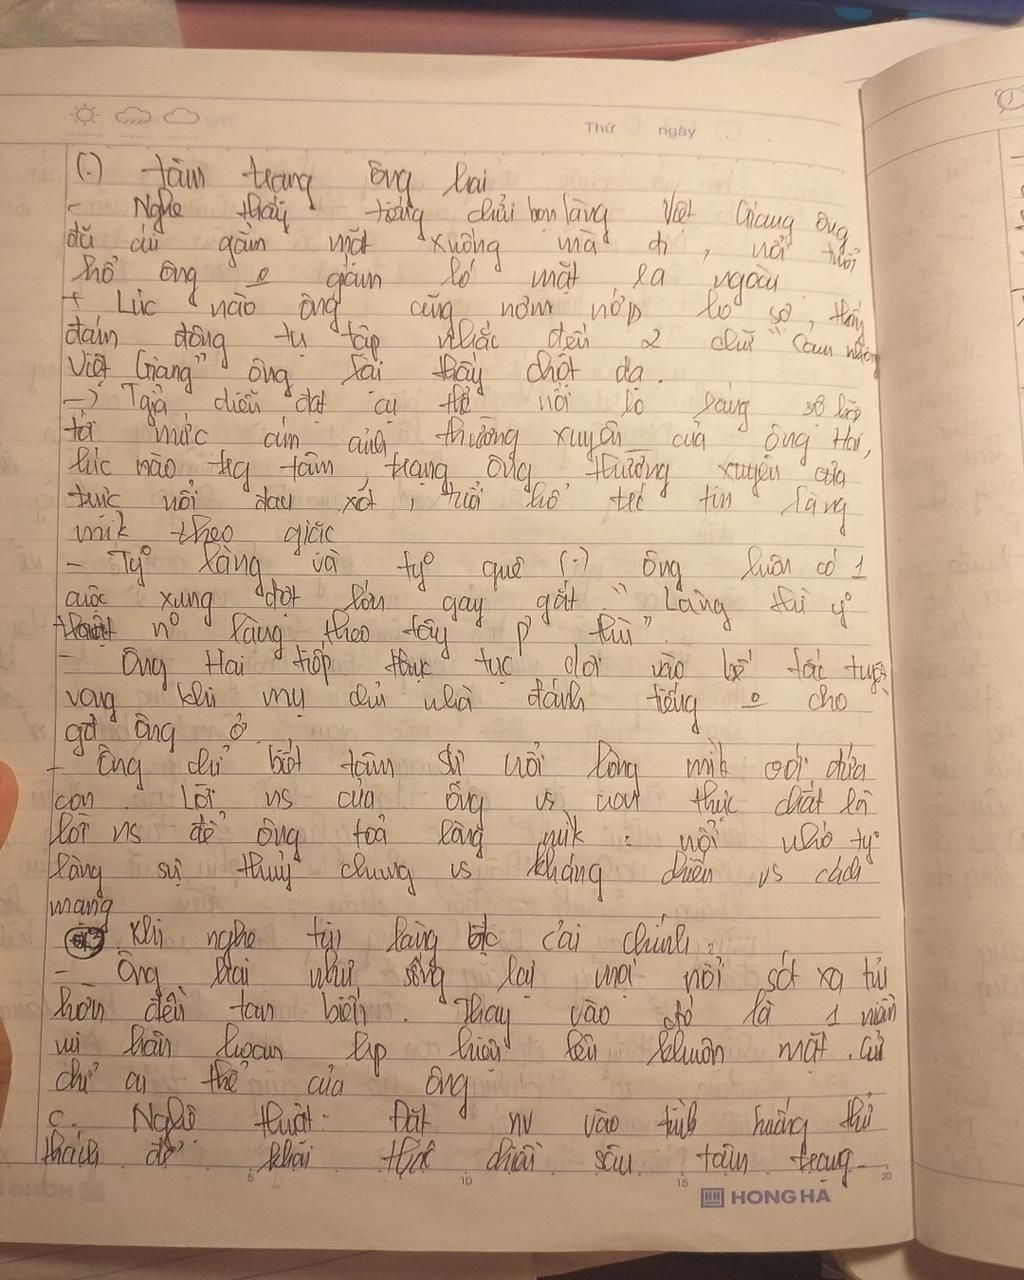 Thứ ngày
(.) tâm trạng ông hai
- Nghe thấy tiếng chửi bọn làng Việt Giang ông
đã cúi gằm mặt xuống mà đi, nỗi tủi
hổ ông o giám ló mặt ra ngoài
+ Lúc nào ông cũng nơm nớp lo sợ, thấy
đám đông tụ tập nhắc đến 2 chữ "Cam nhông
Việt Giang" ông lại thấy chột dạ.
-> Tgiả diễn đạt cụ thể nỗi lo lắng sợ hãi
tới mức ám ảnh thường xuyên của ông Hai,
lúc nào trg tâm trạng ông thường xuyên
trực nỗi đau xót, tủi hổ trc tin làng
mik theo giặc
- Ty° làng và ty° quê (.) ông luôn có 1
cuộc xung đột lớn gay gắt "Làng thì y°
thật n° làng theo tây p° thù".
- Ông Hai tiếp tục rơi vào bế tắc tuyệt
vọng khi mụ chủ nhà đánh tiếng o cho
gđ ông ở.
- Ông chỉ biết tâm sự nỗi lòng mik với đứa
con. Lời ns của ông vs con thực chất là
lời ns để ông toả lòng mik: nỗi nhớ ty°
làng sự thuỷ chung vs kháng chiến vs cách
mạng
Khi nghe tin làng đc cải chính:
- Ông hai như sống lại mọi nỗi sót xa tủi
hờn đều tan biến. Thay vào đó là 1 niềm
vui hân hoan hiện lên khuôn mặt. Cử
chỉ cụ thể của ông
c. Nghê thuật: Đặt nv vào tình huống thử
thách để khai thác chiều sâu tâm trạng
5 10 15 20
HH HONG HA